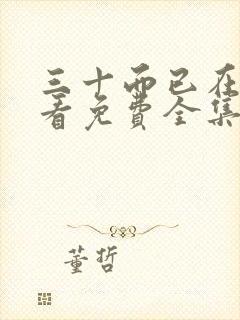 三十而已在
看免费全集
董哲